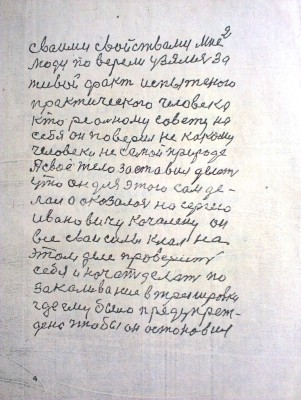 2
своими свойствами мне
люди поверели узялися за
живой факт испытеного
практического человека
кто реальному совету на
себя он поверил не какому
человеку не самой природе
Я своё тело заставил делат
што он для этого сам де-
лал оказался на сергею
ивановичу он
все сваи силы клал на
этом деле проверит
себя и начат делат по
закаливание в тренировки
где ему было предупреж-
дено чтобы он остоновил